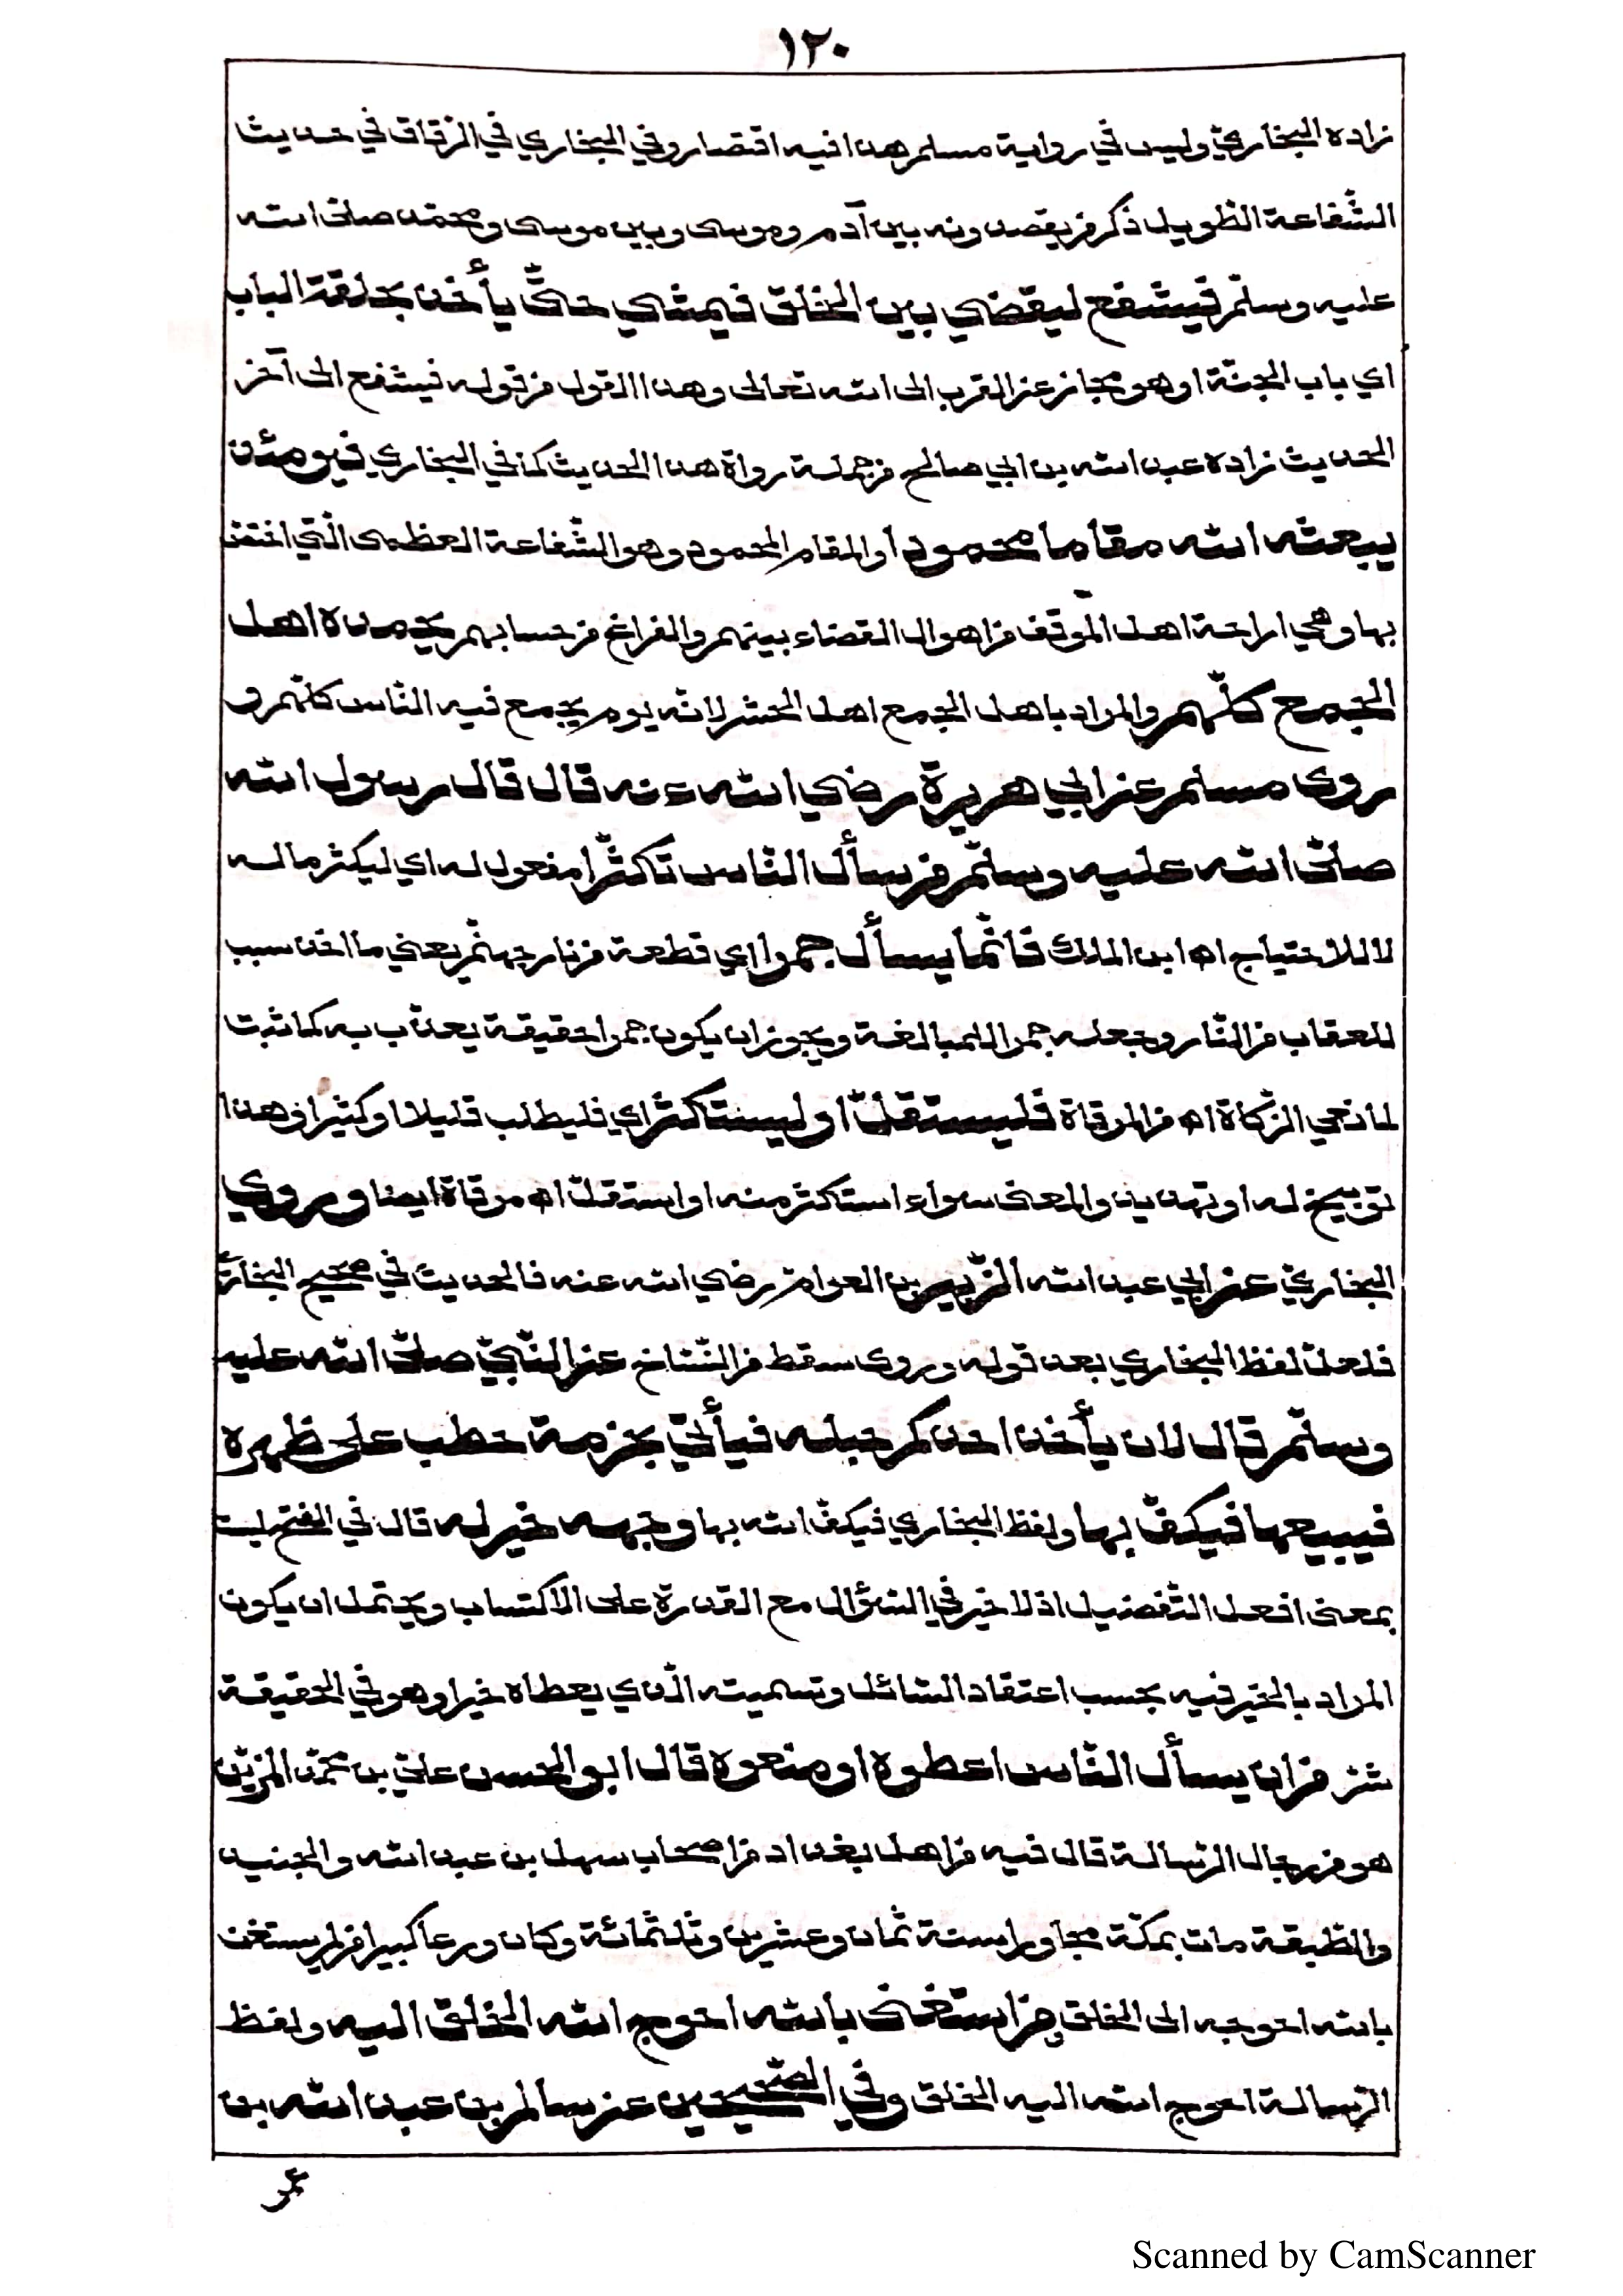 ١٢٠
زاده البخاريّ وليس في رواية مسلم هذا فيه اقتصار وفي البخاري في الزقاق في حديث
الشّفاعة الطّويل ذكر من يقصدونه بين آدم وموسى وبين موسى ومحمّد صلى الله
عليه وسلّم فيشفع ليقضي بين الخلق فيمشي حتّى يأخذ بحلقة الباب
اي باب الجنّة او هو مجاز عن القرب الى الله تعالى وهذا القول من قوله فيشفع الى آخر
الحديث زاده عبد الله بن ابي صالح من جملة رواة هذا الحديث كما في البخاري فيومئذ
يبعثه الله مقاما محمودا والمقام المحمود وهو الشّفاعة العظمى الّتي اختصّ
بها وهي اراحة اهل الموقف من اهوال القضاء بينهم والفراغ من حسابهم يحمده اهل
الجمع كلّهم والمراد باهل الجمع اهل الحشر لانّه يوم يجمع فيه النّاس كلّهم و
روى مسلم عن ابي هريرة رضي الله عنه قال قال رسول الله
صلّى الله عليه وسلّم من سأل النّاس تاكثّرا مفعول له اي ليكثر ماله
لا للاحتياج اه ابن الملك فانّما يسأل جمرا اي قطعة من نار جهنّم يعني ما اخذ سبب
للعقاب من النّار وجعله جمرا للمبالغة ويجوز ان يكون جمرا حقيقة يعذّب به كما ثبت
لمانعي الزّكاة اه من المرقاة فليستقلّ او ليستاكثر اي فليطلب قليلا او كثيرا وهذا
توبيخ له او تهديد والمعنى سواء استكثر منه او استقلّ اه مرقاة ايضا وروي
البخاريّ عن ابي عبد الله الزّبير بن العوام رضي الله عنه فالحديث في صحيح البخاريّ
فلعلّ لفظ البخاري بعد قوله وروى سقط من النّسّاخ عن النّبيّ صلّى الله عليه
وسلّم قال لان يأخذ احدكم حبله فيأتي بحزمة حطب على ظهره
فيبيعها فيكفّ بها ولفظ البخاري فيكفّ الله بها وجهه خير له قال في الفتح ليست
بمعنى افعل التّفضيل اذ لا خير في السّؤال مع القدرة على الاكتساب ويحتمل ان يكون
المراد بالخير فيه بحسب اعتقاد السّائل وتسميته الّذي يعطاه خيرا وهو في الحقيقة
شرّ من ان يسأل النّاس اعطوه او منعوه قال ابو الحسن عليّ بن محمّد المزيّن
هو من رجال الرّسالة قال فيه من اهل بغداد من اصحاب سهل بن عبد الله والجنيد
والطّبقة مات بمكّة مجاورا سنة ثمان وعشرين وثلثمائة وكان ورعا كبيرا من لم يستغن
بالله احوجه الى الخلق ومن استغنى بالله احوج الله الخلق اليه ولفظ
الرّسالة احوج الله اليه الخلق وفي الصّحيحين عن سالم بن عبد الله بن
عمر
Scanned by CamScanner